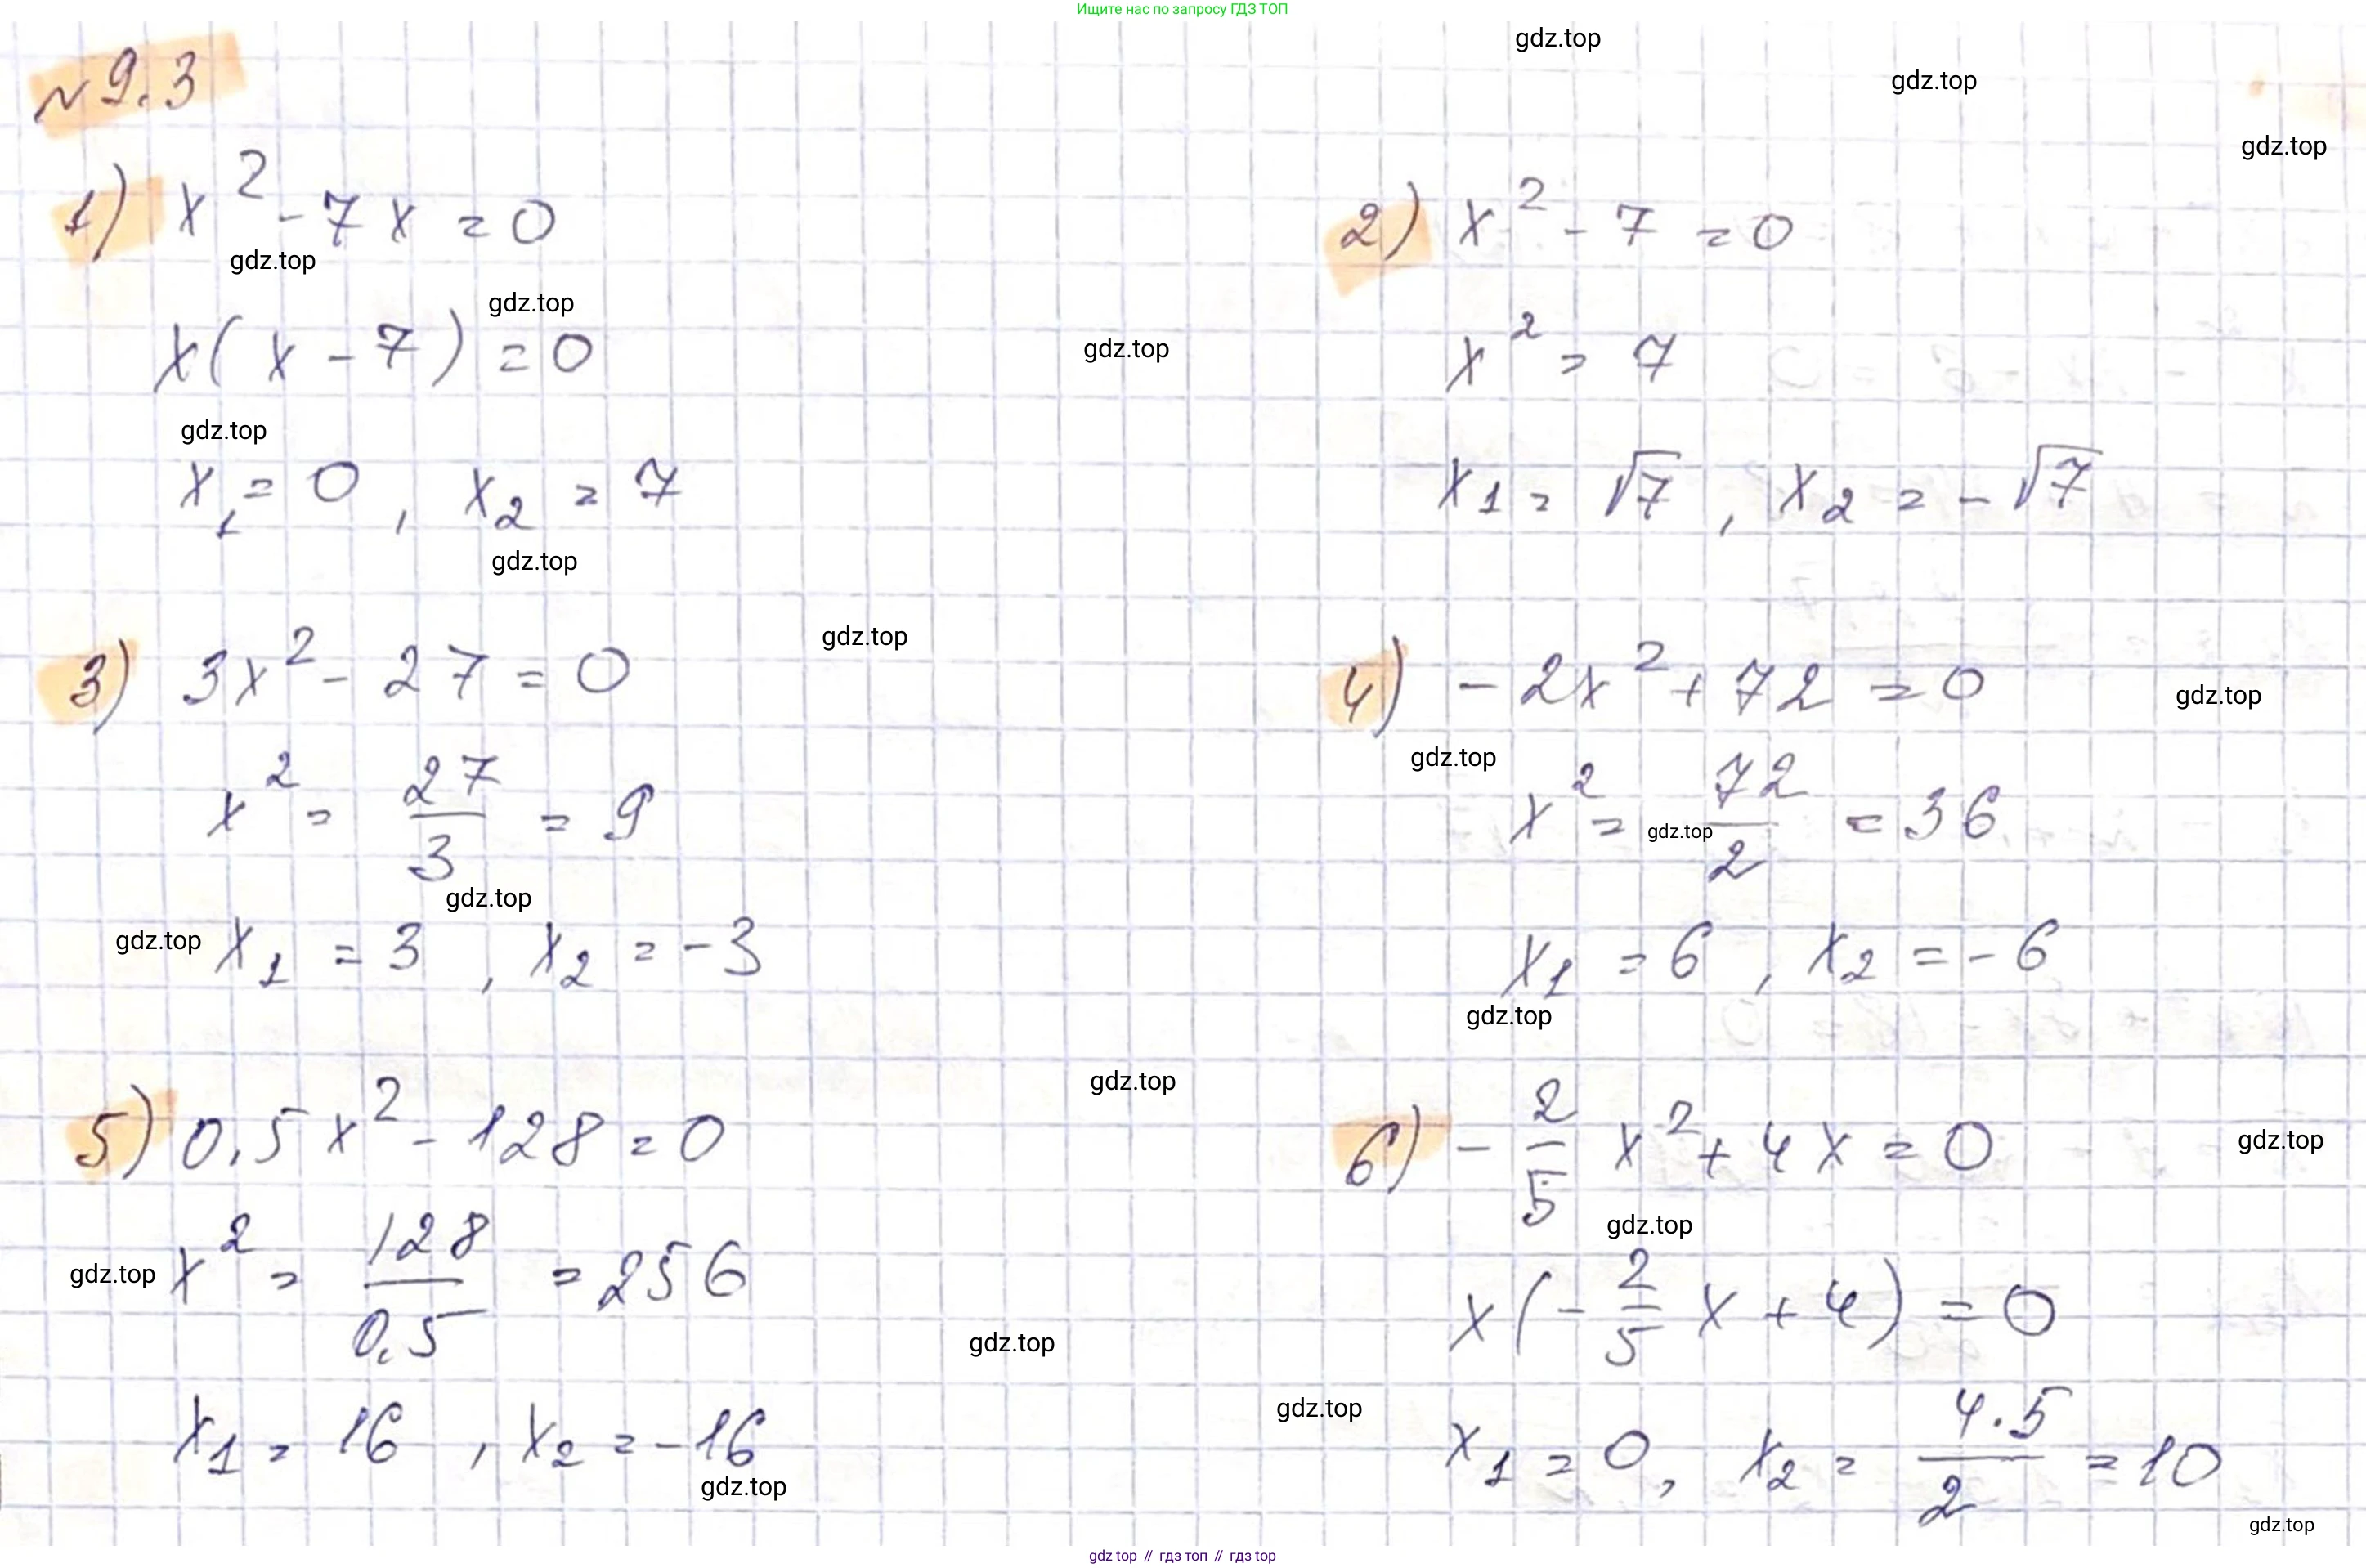 Ищите нас по запросу ГДЗ ТОП
gdz.top
gdz.top
gdz.top
№9.3
1) x² - 7x = 0
gdz.top
gdz.top
x(x - 7) = 0
gdz.top
x₁ = 0, x₂ = 7
gdz.top
gdz.top
2) x² - 7 = 0
x² = 7
x₁ = √7, x₂ = -√7
3) 3x² - 27 = 0
gdz.top
x² = 27/3 = 9
gdz.top
gdz.top
x₁ = 3, x₂ = -3
4) -2x² + 72 = 0
gdz.top
gdz.top
x² = 72/2 = 36
gdz.top
x₁ = 6, x₂ = -6
gdz.top
gdz.top
5) 0,5x² - 128 = 0
gdz.top
x² = 128/0,5 = 256
gdz.top
x₁ = 16, x₂ = -16
gdz.top
6) -2/5 x² + 4x = 0
gdz.top
gdz.top
x(-2/5 x + 4) = 0
gdz.top
x₁ = 0, x₂ = 4·5/2 = 10
gdz.top
gdz top // гдз топ // гдз top